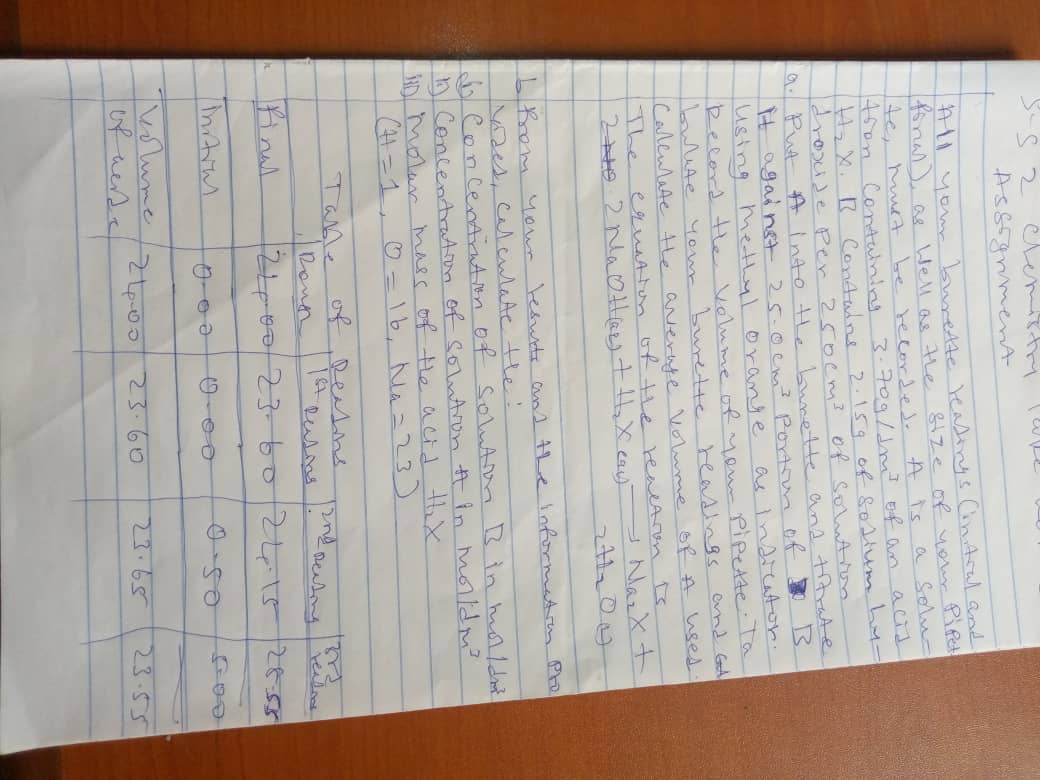 S.S 2 Chemistry
Assignment
All your burette readings (initial and
final), as well as the size of your pipet
te, must be recorded. A is a solu-
tion containing 3.70g/dm³ of an acid
H₂X. B contains 2.15g of sodium hy-
droxide per 250cm³ of solution
a. Put A into the burette and titrate
it against 25.0cm³ portion of B
using methyl orange as indicator.
Record the volume of your pipette. Ta
bulate your burette readings and cal
Calculate the average volume of A used.
The equation of the reaction is
2NaOH(aq) + H₂X(aq) → Na₂X +
2H₂O(l)
b From your results and the information pro
vided, calculate the:
i) Concentration of solution B in mol/dm³
ii) Concentration of solution A in mol/dm³
iii) Molar mass of the acid H₂X
(H=1, O=16, Na=23)
Table of Readings
Rough 1st Reading 2nd Reading 3rd reading
Final 24.00 23.60 24.15 28.55
Initial 0.00 0.00 0.50 5.00
Volume of acid 24.00 23.60 23.65 23.55